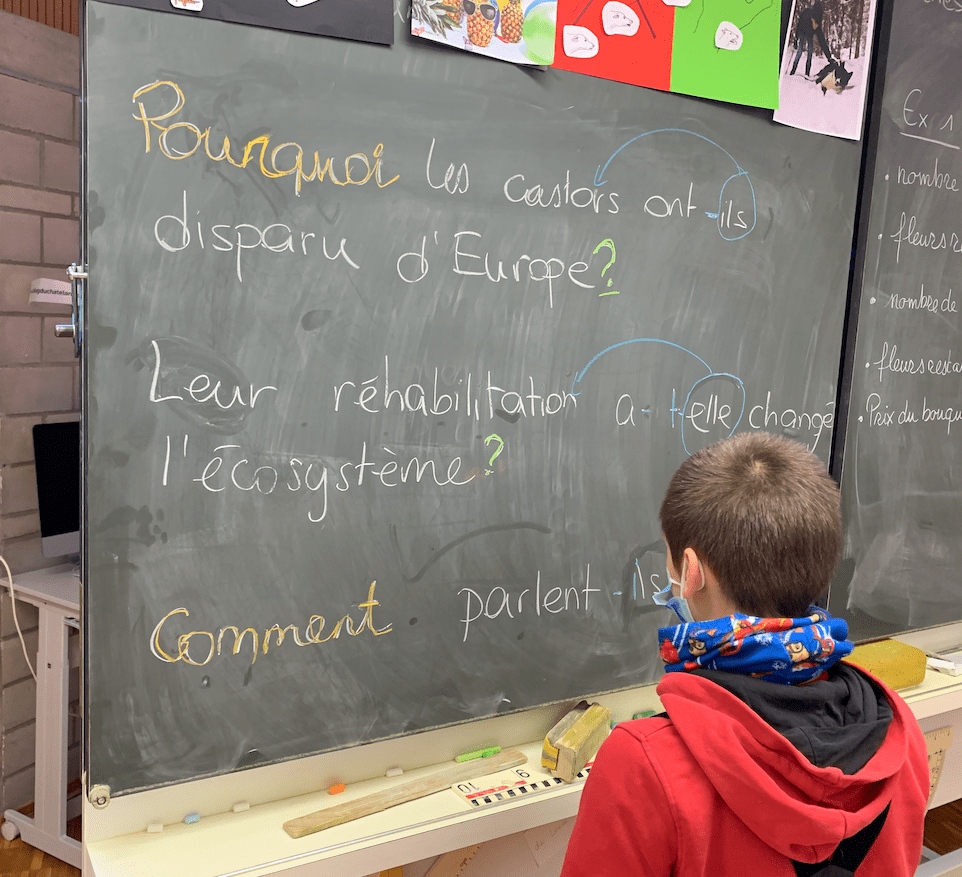 Pourquoi les castors ont-ils
disparu d'Europe?
Leur réhabilitation a-t-elle changé
l'écosystème?
Comment parlent-ils
Ex 1
• nombre
• fleurs
• nombre de
• fleurs
• Prix du
10 9